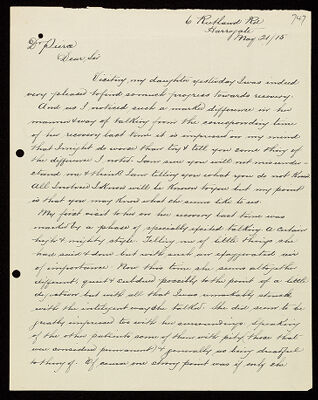 6 Rutland Rd.
Harrogate
May 21/15
Dr Pierce
Dear Sir
Visiting my daughter yesterday I was indeed
very pleased to find so much progress towards recovery
And as I noticed such a marked difference in her
manner & way of talking from the corresponding time
of her recovery last time it is impressed on my mind
that I might do worse than try & tell you some thing of
the difference I noted. I am sure you will not misunder-
stand me & think I am telling you what you do not know
All I noticed I know will be known to you but my point
is that you may know what she seems like to us.
My first visit to her on her recovery last time was
marked by a phase of specially spirited talking a certain
high & mighty style. Telling me of little things she
had said & done but with such an exaggerated air
of importance. Now this time she seems altogether
different, quiet & subdued possibly to the point of a little
dejection but with all that I was remarkably struck
with the intelligent way she talked. She did seem to be
greatly impressed too with her surroundings. Speaking
of the other patients some of them with pity, those that
are considered permanent & generally as being dreadful
to think of. Of course one strong point was if only she